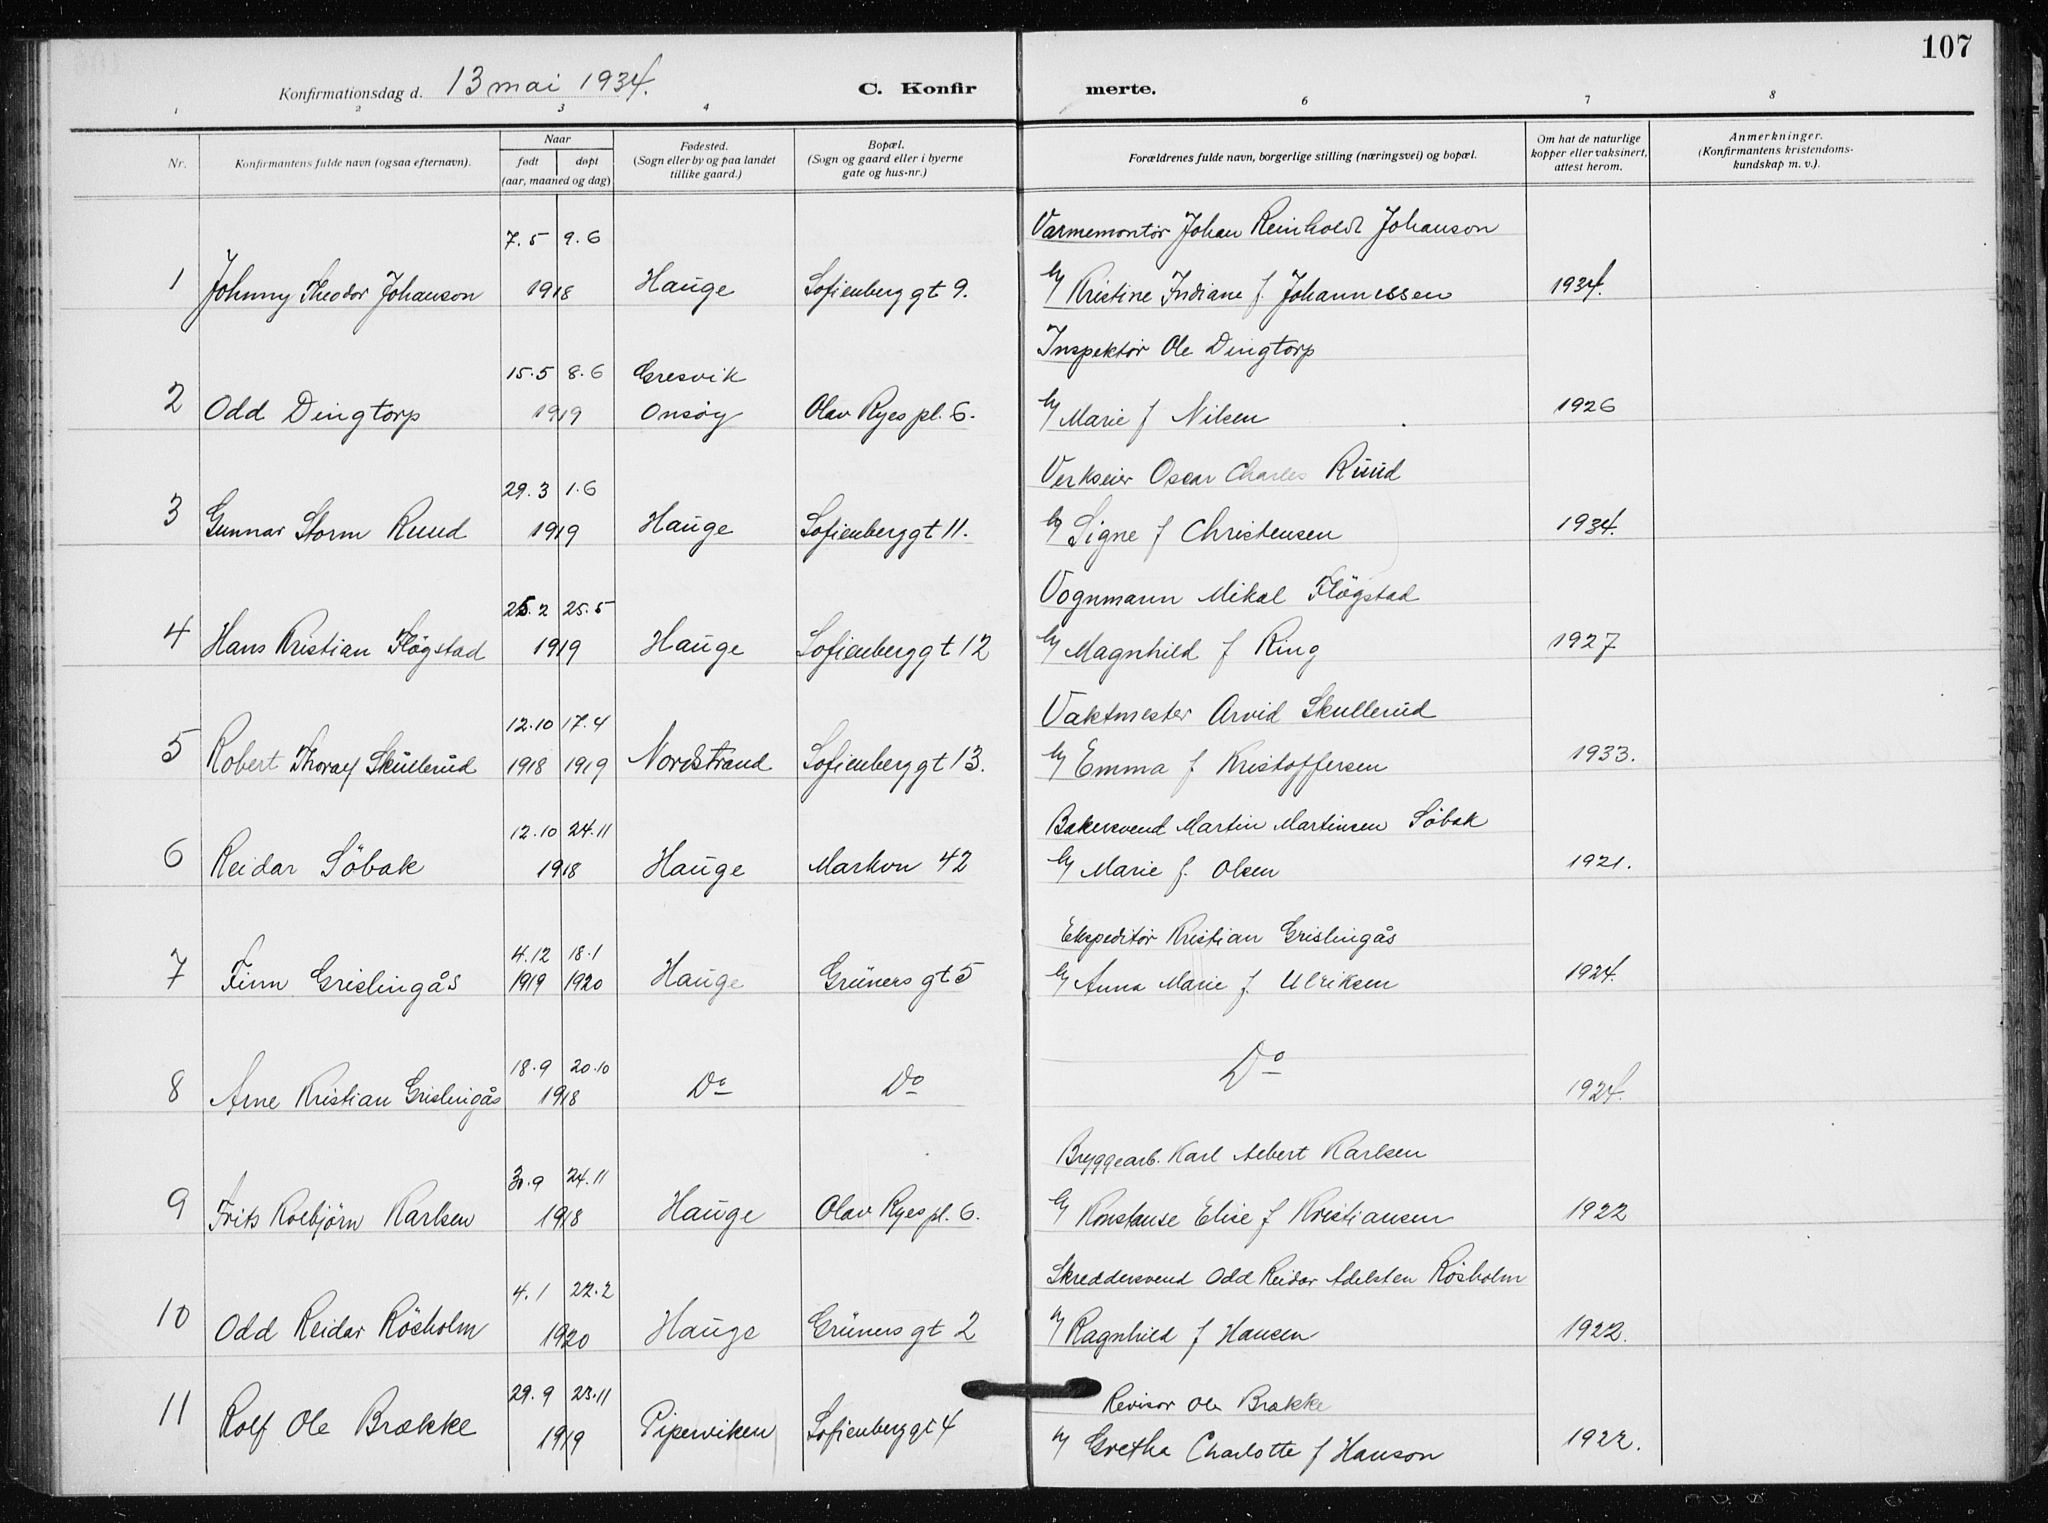 107
Konfirmationsdag d. 13 mai 1934. C. Konfir merte.
1 2 3 4 6 7 8
Nr.
Konfirmantens fulde navn (ogsaa efternavn).
Naar
født døpt
(aar, maaned og dag)
Fødested.
(Sogn eller by og paa landet
tillike gaard.)
Bopæl.
(Sogn og gaard eller i byerne
gate og hus-nr.)
Forældrenes fulde navn, borgerlige stilling (næringsvei) og bopæl.
Om hat de naturlige
kopper eller vaksinert,
attest herom.
Anmerkninger.
(Konfirmantens kristendoms-
kundskap m. v.).
7.5 9.6 Varmemontör Johan Reinholdt Johanson
1 Johnny Theodor Johanson 1918 Hauge Sofienberggt 9. Kristine Indiane f. Johannessen 1934.
Inspektör Ole Dingtorp
15.5 8.6 Gresvik
2 Odd Dingtorp 1919 Onsöy Olav Ryes pl. 6. Marie f Nilsen 1926
29.3 1.6 Verkseier Oscar Charles Ruud
3 Gunnar Storm Ruud 1919 Hauge Sofienberggt 11. Signe f Christensen 1934.
25.2 25.5 Vognmann Mikal Flögstad
4 Hans Kristian Flögstad 1919 Hauge Sofienberggt 12 Magnhild f Ring 1927
12.10 17.4 Vaktmester Arvid Skullerud
5 Robert Thoralf Skullerud 1918 1919 Nordstrand Sofienberggt 13. Emma f Kristoffersen 1933.
12.10 24.11 Bakersvend Martin Martinsen Söbak
6 Reidar Söbak 1918 Hauge Markvn 42 Marie f. Olsen 1921.
4.12 18.1 Ekspeditör Kristian Grislingås
7 Finn Grislingås 1919 1920 Hauge Grüners gt 5 Anna Marie f. Ulriksen 1924.
18.9 20.10
8 Arne Kristian Grislingås 1918 Do Do Do 1924.
30.9 24.11 Bryggearb. Karl Albert Karlsen
9 Frits Kolbjörn Karlsen 1918 Hauge Olav Ryes pl. 6. Konstanse Elise f Kristiansen 1922
4.1 22.2 Skreddersvend Odd Reidar Adelsten Rösholm
10 Odd Reidar Rösholm 1920 Hauge Grüners gt 2 Ragnhild f Hansen 1922.
29.9 23.11 Revisor Ole Brække
11 Rolf Ole Brække 1919 Piperviken Sofienberggt 4 Grethe Charlotte f Hanson 1922.